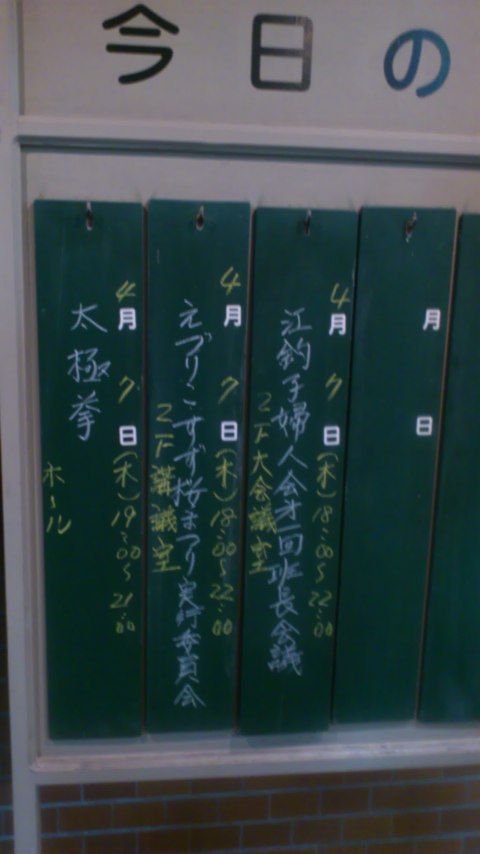 今日の
月
日
4月7日(木)18:00~22:00
江釣子婦人会才一回班長会議
2F大会議室
4月7日(木)18:00~22:00
えづりこすず桜まつり実行委員会
2F講議室
4月7日(木)19:00~21:00
太極拳
ホール